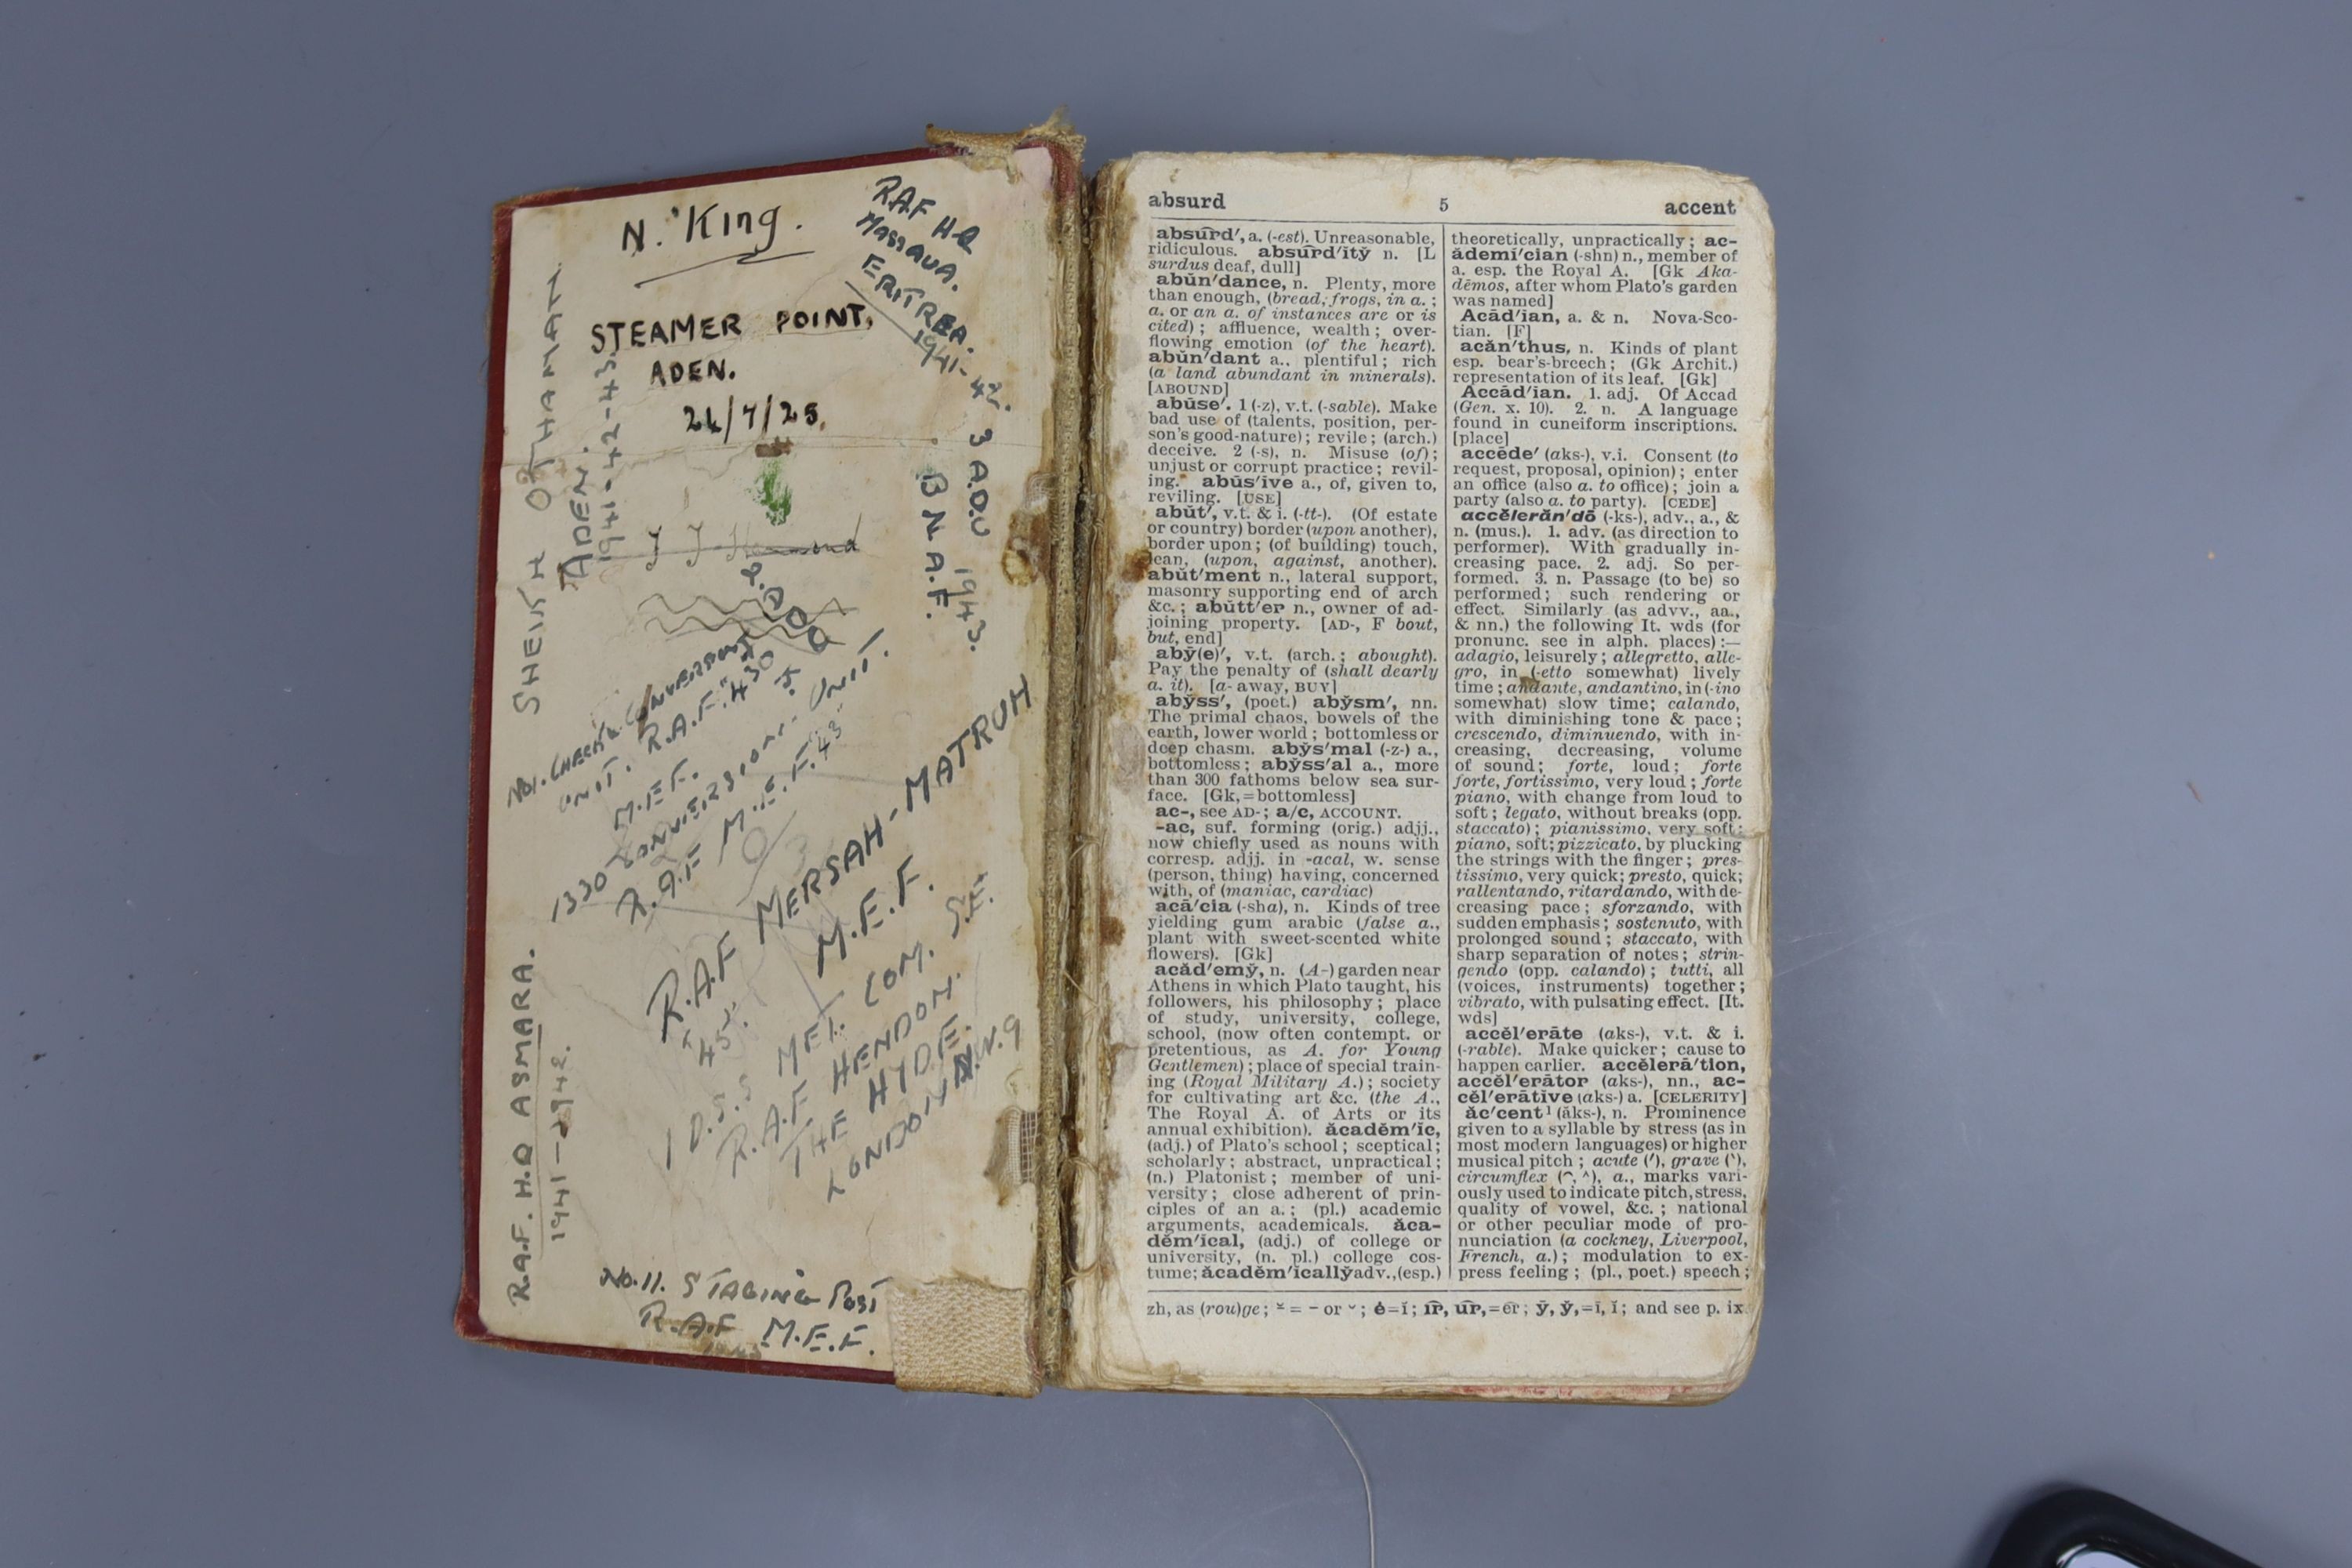 N. King.
STEAMER POINT,
ADEN.
RAF HQ
MASSAUA.
ERITREA.
1941-42.
3 A.D.U 1943.
B N. A. F.
SHEIKH OTHAMAN.
ADEN.
1941-42-43.
UNIT. R.A.F. "43"
M.E.F.
1330 CONVERSION. UNIT.
R.A.F M.E.F. "43"
R.A.F MERSAH-MATRUH
"45". M.E.F.
MET. COM. S.E.
R.A.F HENDON.
THE HYDE.
LONDON N.W.9
R.A.F. H.Q ASMARA.
1941-1942.
No. 11. STAGING POST
R.A.F M.E.F.
absurd 5 accent
absûrd', a. (-est). Unreasonable,
ridiculous. absûrd'ĭtў n. [L
surdus deaf, dull]
abŭn'dance, n. Plenty, more
than enough, (bread, frogs, in a.;
a. or an a. of instances are or is
cited); affluence, wealth; over-
flowing emotion (of the heart).
abŭn'dant a., plentiful; rich
(a land abundant in minerals).
[ABOUND]
abūse'. 1 (-z), v.t. (-sable). Make
bad use of (talents, position, per-
son's good-nature); revile; (arch.)
deceive. 2 (-s), n. Misuse (of);
unjust or corrupt practice; revil-
ing. abūs'ive a., of, given to,
reviling. [USE]
abŭt', v.t. & i. (-tt-). (Of estate
or country) border (upon another),
border upon; (of building) touch,
lean, (upon, against, another).
abŭt'ment n., lateral support,
masonry supporting end of arch
&c.; abŭtt'er n., owner of ad-
joining property. [AD-, F bout,
but, end]
abȳ(e)', v.t. (arch.; abought).
Pay the penalty of (shall dearly
a. it). [a- away, BUY]
abўss', (poet.) abўsm', nn.
The primal chaos, bowels of the
earth, lower world; bottomless or
deep chasm. abўs'mal (-z-) a.,
bottomless; abўss'al a., more
than 300 fathoms below sea sur-
face. [Gk, = bottomless]
ac-, see AD-; a/c, ACCOUNT.
-ac, suf. forming (orig.) adjj.,
now chiefly used as nouns with
corresp. adjj. in -acal, w. sense
(person, thing) having, concerned
with, of (maniac, cardiac)
acā'cia (-sha), n. Kinds of tree
yielding gum arabic (false a.,
plant with sweet-scented white
flowers). [Gk]
acăd'emў, n. (A-) garden near
Athens in which Plato taught, his
followers, his philosophy; place
of study, university, college,
school, (now often contempt. or
pretentious, as A. for Young
Gentlemen); place of special train-
ing (Royal Military A.); society
for cultivating art &c. (the A.,
The Royal A. of Arts or its
annual exhibition). ăcadĕm'ĭc,
(adj.) of Plato's school; sceptical;
scholarly; abstract, unpractical;
(n.) Platonist; member of uni-
versity; close adherent of prin-
ciples of an a.; (pl.) academic
arguments, academicals. ăca-
dĕm'ical, (adj.) of college or
university, (n. pl.) college cos-
tume; ăcadĕm'icallў adv., (esp.)
theoretically, unpractically; ac-
ădemi'cian (-shn) n., member of
a. esp. the Royal A. [Gk Aka-
dēmos, after whom Plato's garden
was named]
Acād'ian, a. & n. Nova-Sco-
tian. [F]
acăn'thus, n. Kinds of plant
esp. bear's-breech; (Gk Archit.)
representation of its leaf. [Gk]
Accād'ian. 1. adj. Of Accad
(Gen. x. 10). 2. n. A language
found in cuneiform inscriptions.
[place]
accēde' (aks-), v.i. Consent (to
request, proposal, opinion); enter
an office (also a. to office); join a
party (also a. to party). [CEDE]
accĕlerăn'dō (-ks-), adv., a., &
n. (mus.). 1. adv. (as direction to
performer). With gradually in-
creasing pace. 2. adj. So per-
formed. 3. n. Passage (to be) so
performed; such rendering or
effect. Similarly (as advv., aa.,
& nn.) the following It. wds (for
pronunc. see in alph. places):—
adagio, leisurely; allegretto, alle-
gro, in (-etto somewhat) lively
time; andante, andantino, in (-ino
somewhat) slow time; calando,
with diminishing tone & pace;
crescendo, diminuendo, with in-
creasing, decreasing, volume
of sound; forte, loud; forte
forte, fortissimo, very loud; forte
piano, with change from loud to
soft; legato, without breaks (opp.
staccato); pianissimo, very soft;
piano, soft; pizzicato, by plucking
the strings with the finger; pres-
tissimo, very quick; presto, quick;
rallentando, ritardando, with de-
creasing pace; sforzando, with
sudden emphasis; sostenuto, with
prolonged sound; staccato, with
sharp separation of notes; strin-
gendo (opp. calando); tutti, all
(voices, instruments) together;
vibrato, with pulsating effect. [It.
wds]
accĕl'erāte (aks-), v.t. & i.
(-rable). Make quicker; cause to
happen earlier. accĕlerā'tion,
accĕl'erātor (aks-), nn., ac-
cĕl'erātive (aks-) a. [CELERITY]
ăc'cent¹ (ăks-), n. Prominence
given to a syllable by stress (as in
most modern languages) or higher
musical pitch; acute (´), grave (`),
circumflex (⌢, ^), a., marks vari-
ously used to indicate pitch, stress,
quality of vowel, &c.; national
or other peculiar mode of pro-
nunciation (a cockney, Liverpool,
French, a.); modulation to ex-
press feeling; (pl., poet.) speech;
zh, as (rou)ge; ⏓ = ¯ or ˘; ė=ĭ; îr, ûr, =êr; ȳ, ў, =ī, ĭ; and see p. ix